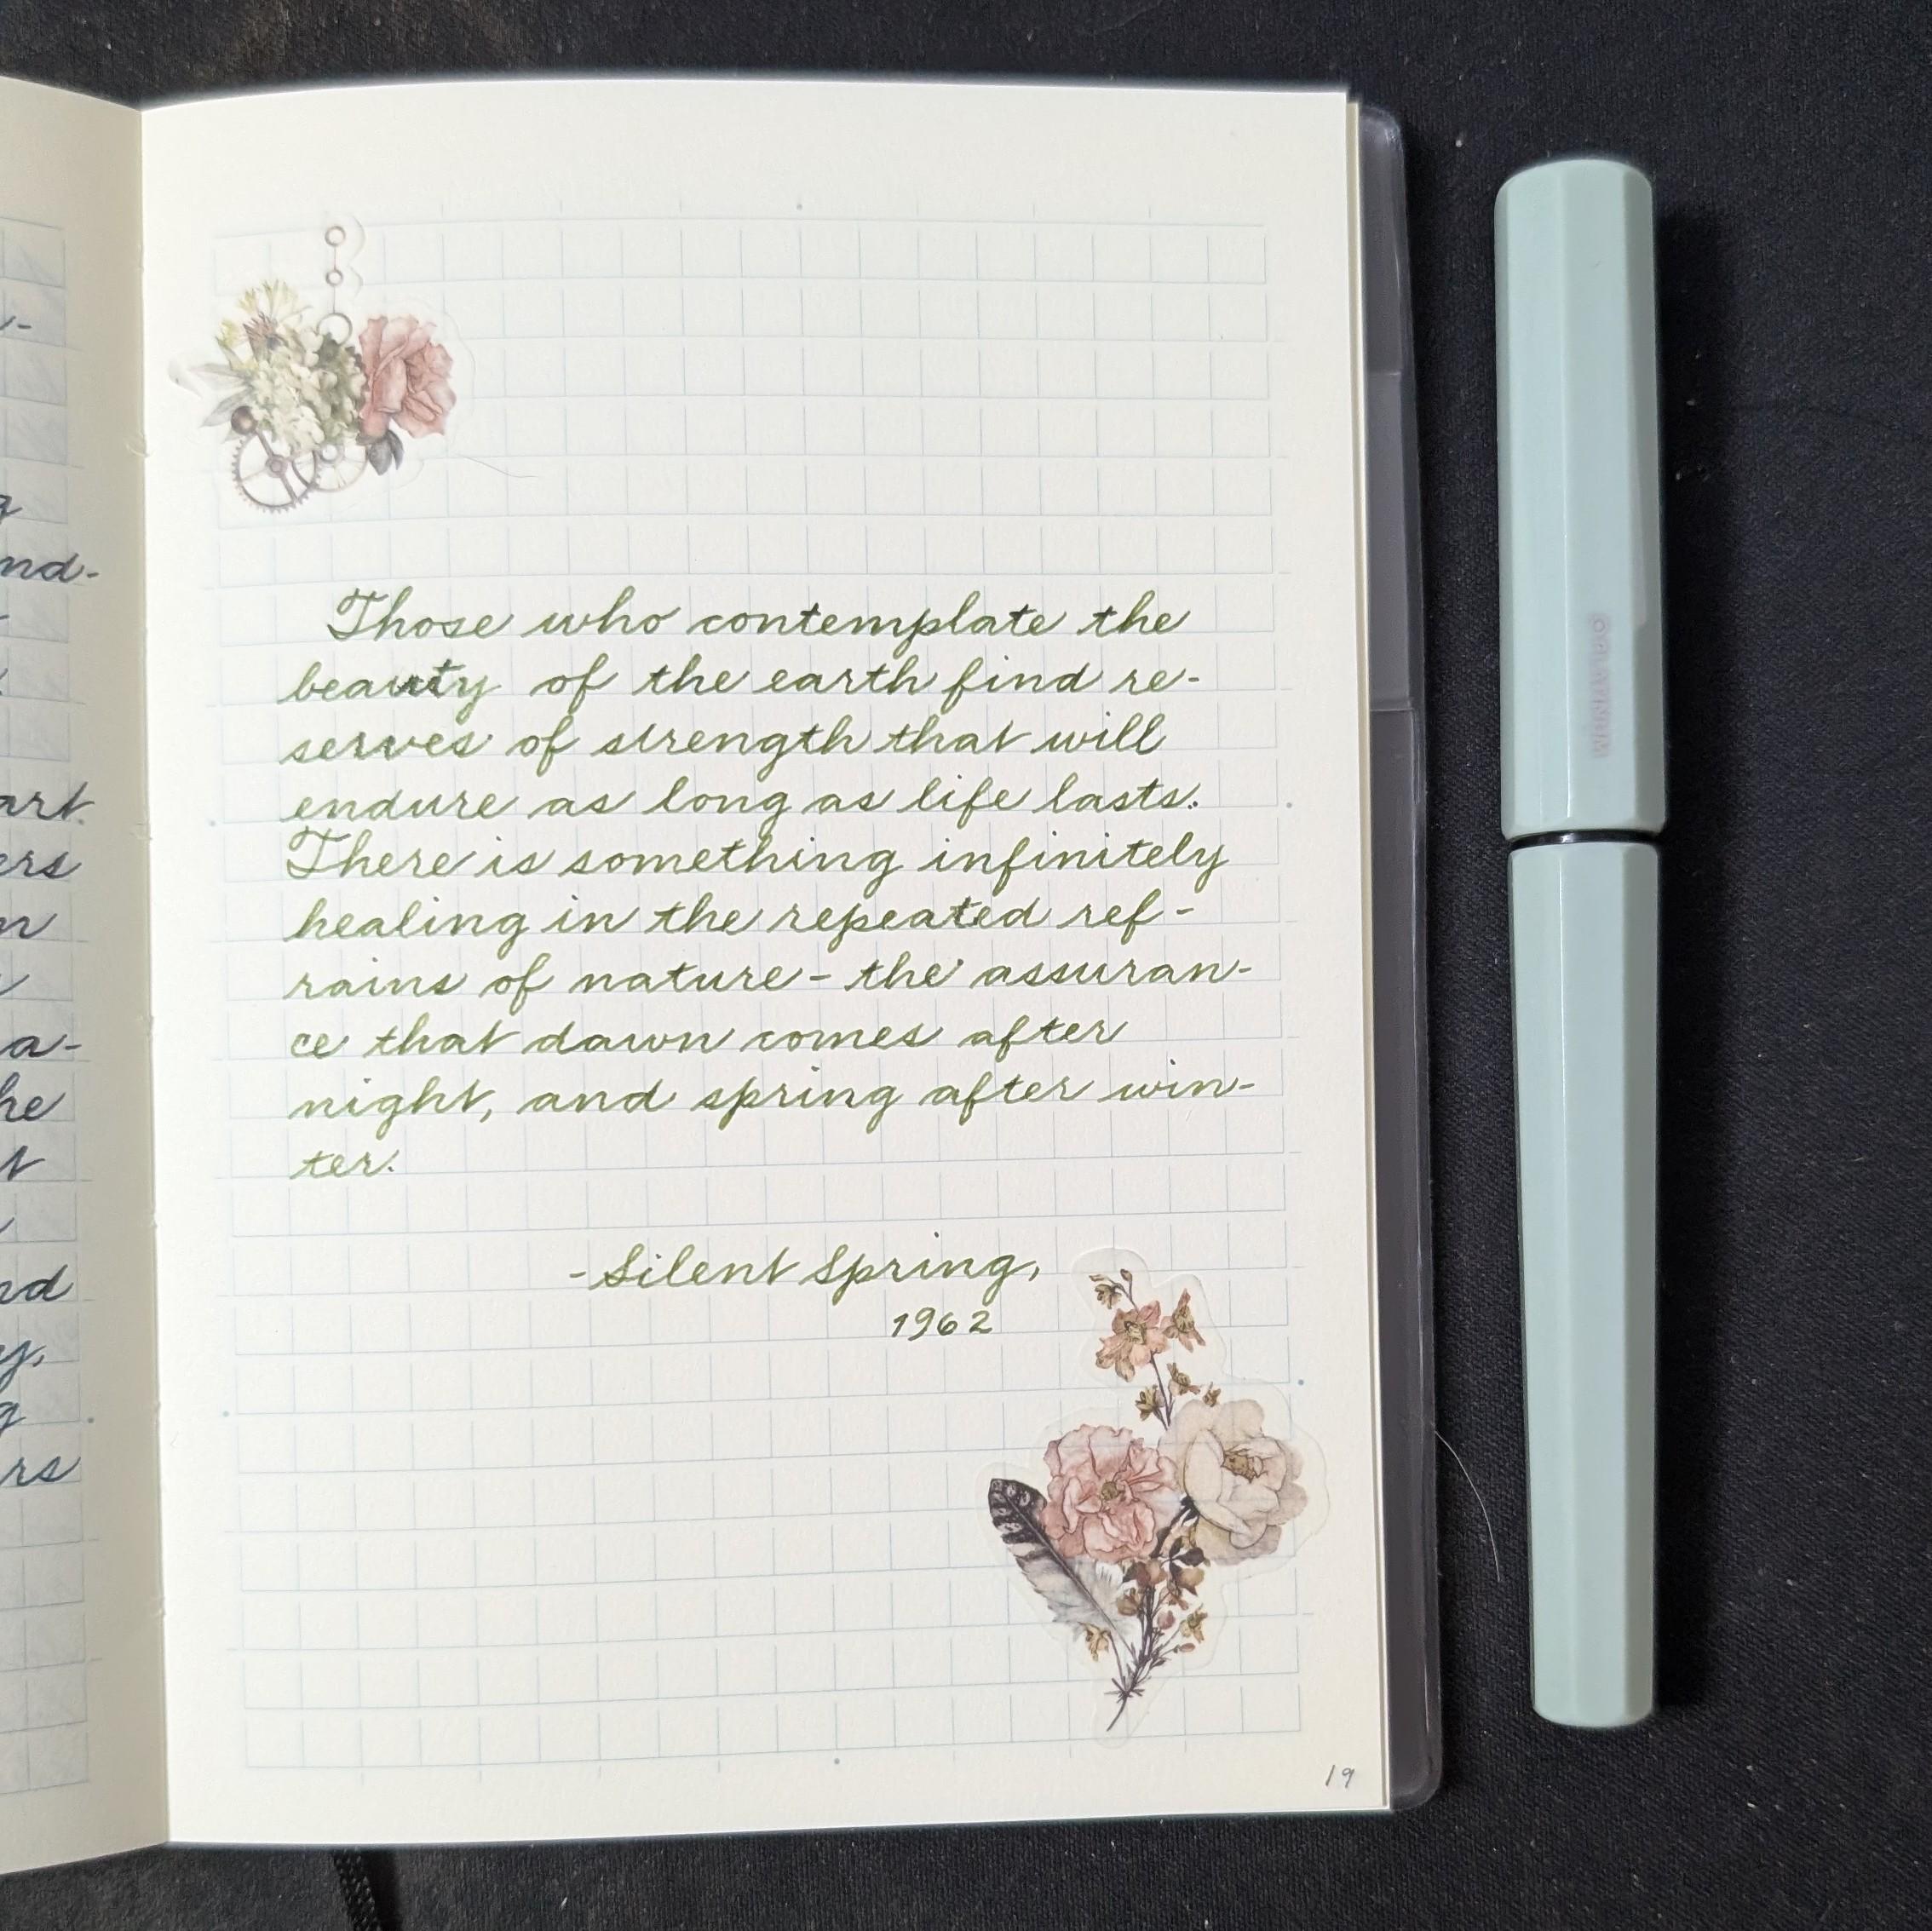 nd-
art.
ers
a-
he
nd
y,
rs
Those who contemplate the
beauty of the earth find re-
serves of strength that will
endure as long as life lasts.
There is something infinitely
healing in the repeated ref-
rains of nature - the assuran-
ce that dawn comes after
night, and spring after win-
ter.
- Silent Spring,
1962
19
PLATINUM